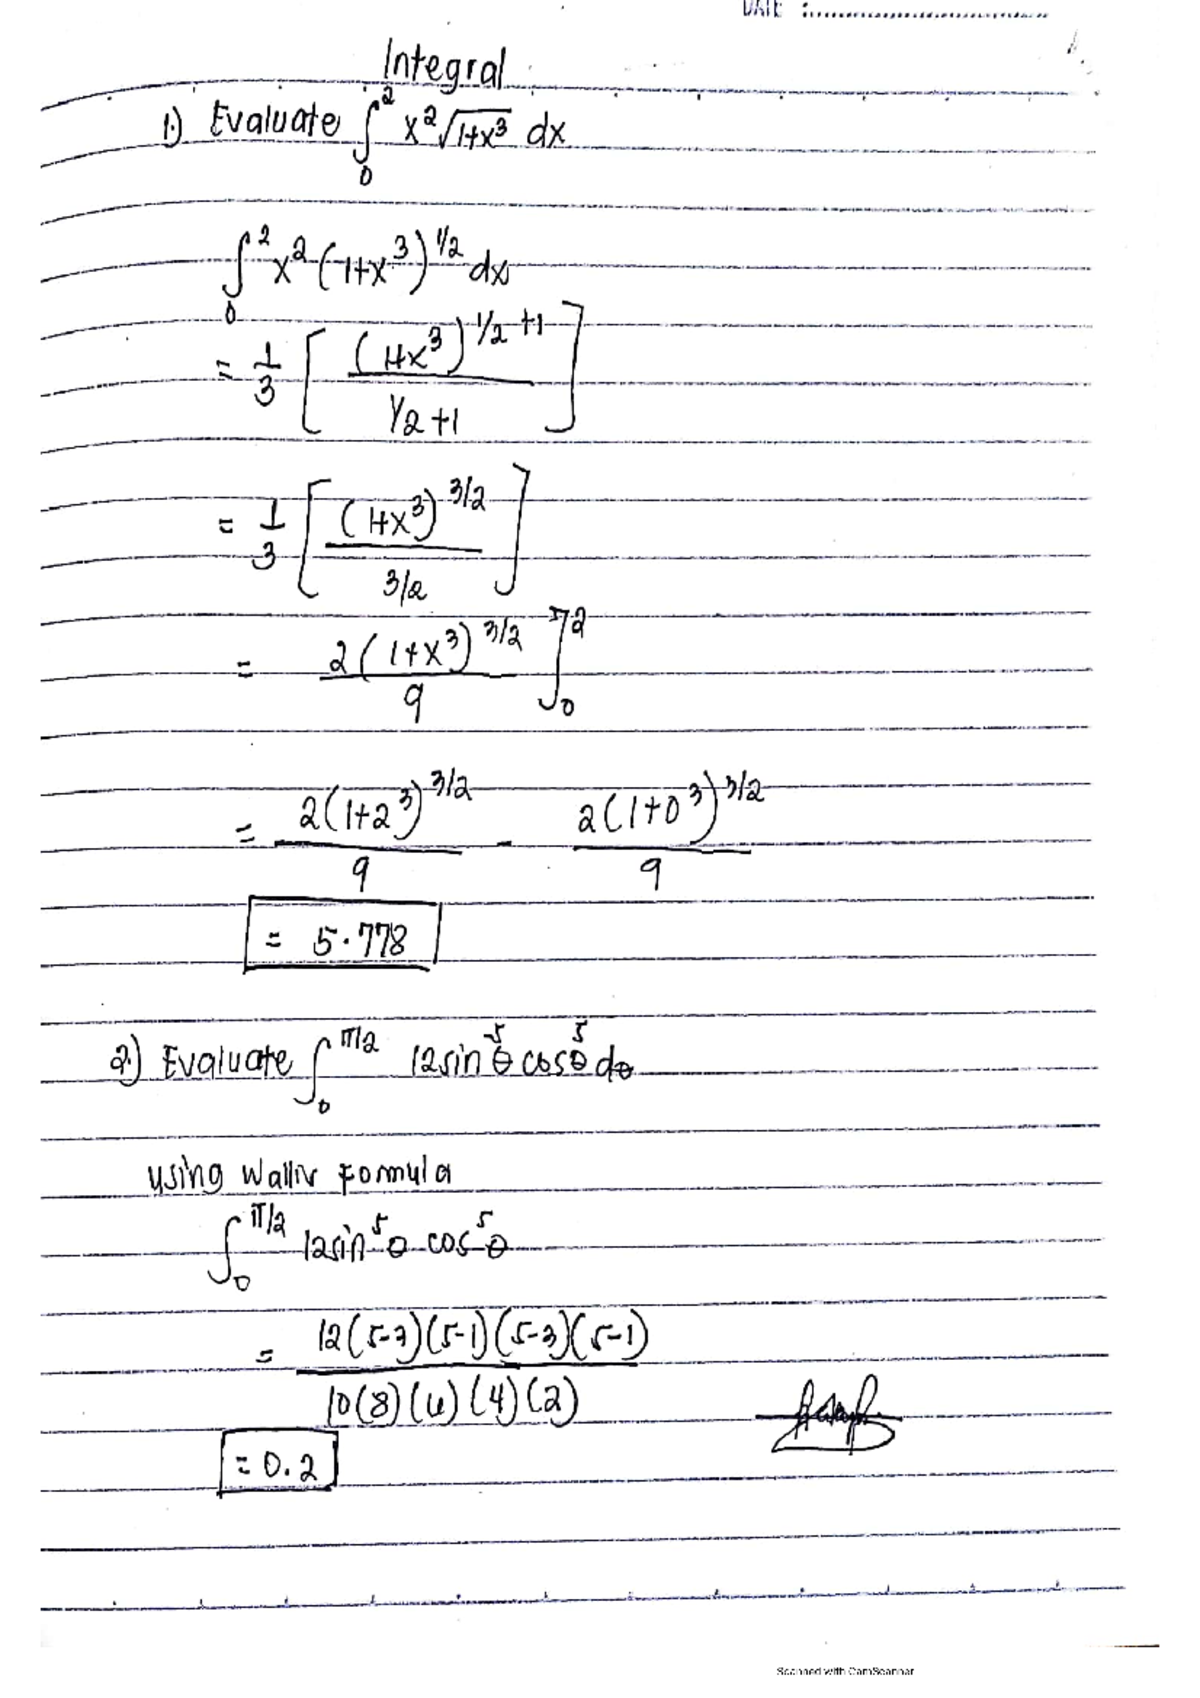 DATE :
Integral
1.) Evaluate ∫₀² x²√(1+x³) dx
∫₀² x² (1+x³)^1/2 dx
= 1/3 [ (1+x³)^1/2 +1 / 1/2 +1 ]
= 1/3 [ (1+x³)^3/2 / 3/2 ]
= 2(1+x³)^3/2 / 9 ]₀²
= 2(1+2³)^3/2 / 9 - 2(1+0³)^3/2 / 9
= 5.778
2.) Evaluate ∫₀^π/2 12sin⁵θ cos⁵θ dθ
using Wallis Formula
∫₀^π/2 12sin⁵θ cos⁵θ
= 12(5-3)(5-1)(5-3)(5-1) / 10(8)(6)(4)(2)
= 0.2
Scanned with CamScanner